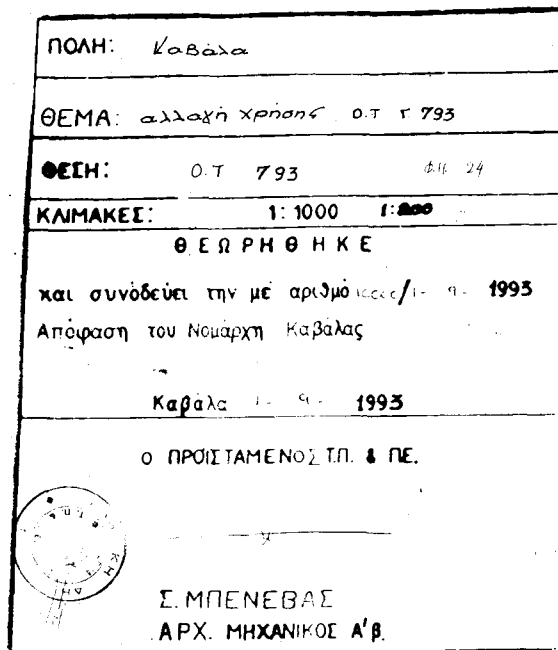 ΠΟΛΗ: Καβάλα
ΘΕΜΑ: αλλαγή χρήσης Ο.Τ Γ 793
ΘΕΣΗ: Ο.Τ 793 24
ΚΛΙΜΑΚΕΣ: 1:1000 1:200
ΘΕΩΡΗΘΗΚΕ
και συνοδεύει την με αριθμό 1993
Απόφαση του Νομάρχη Καβάλας
Καβάλα 1-9-1993
Ο ΠΡΟΪΣΤΑΜΕΝΟΣ Τ.Π. & ΠΕ.
Σ. ΜΠΕΝΕΒΑΣ
ΑΡΧ. ΜΗΧΑΝΙΚΟΣ Α'β.